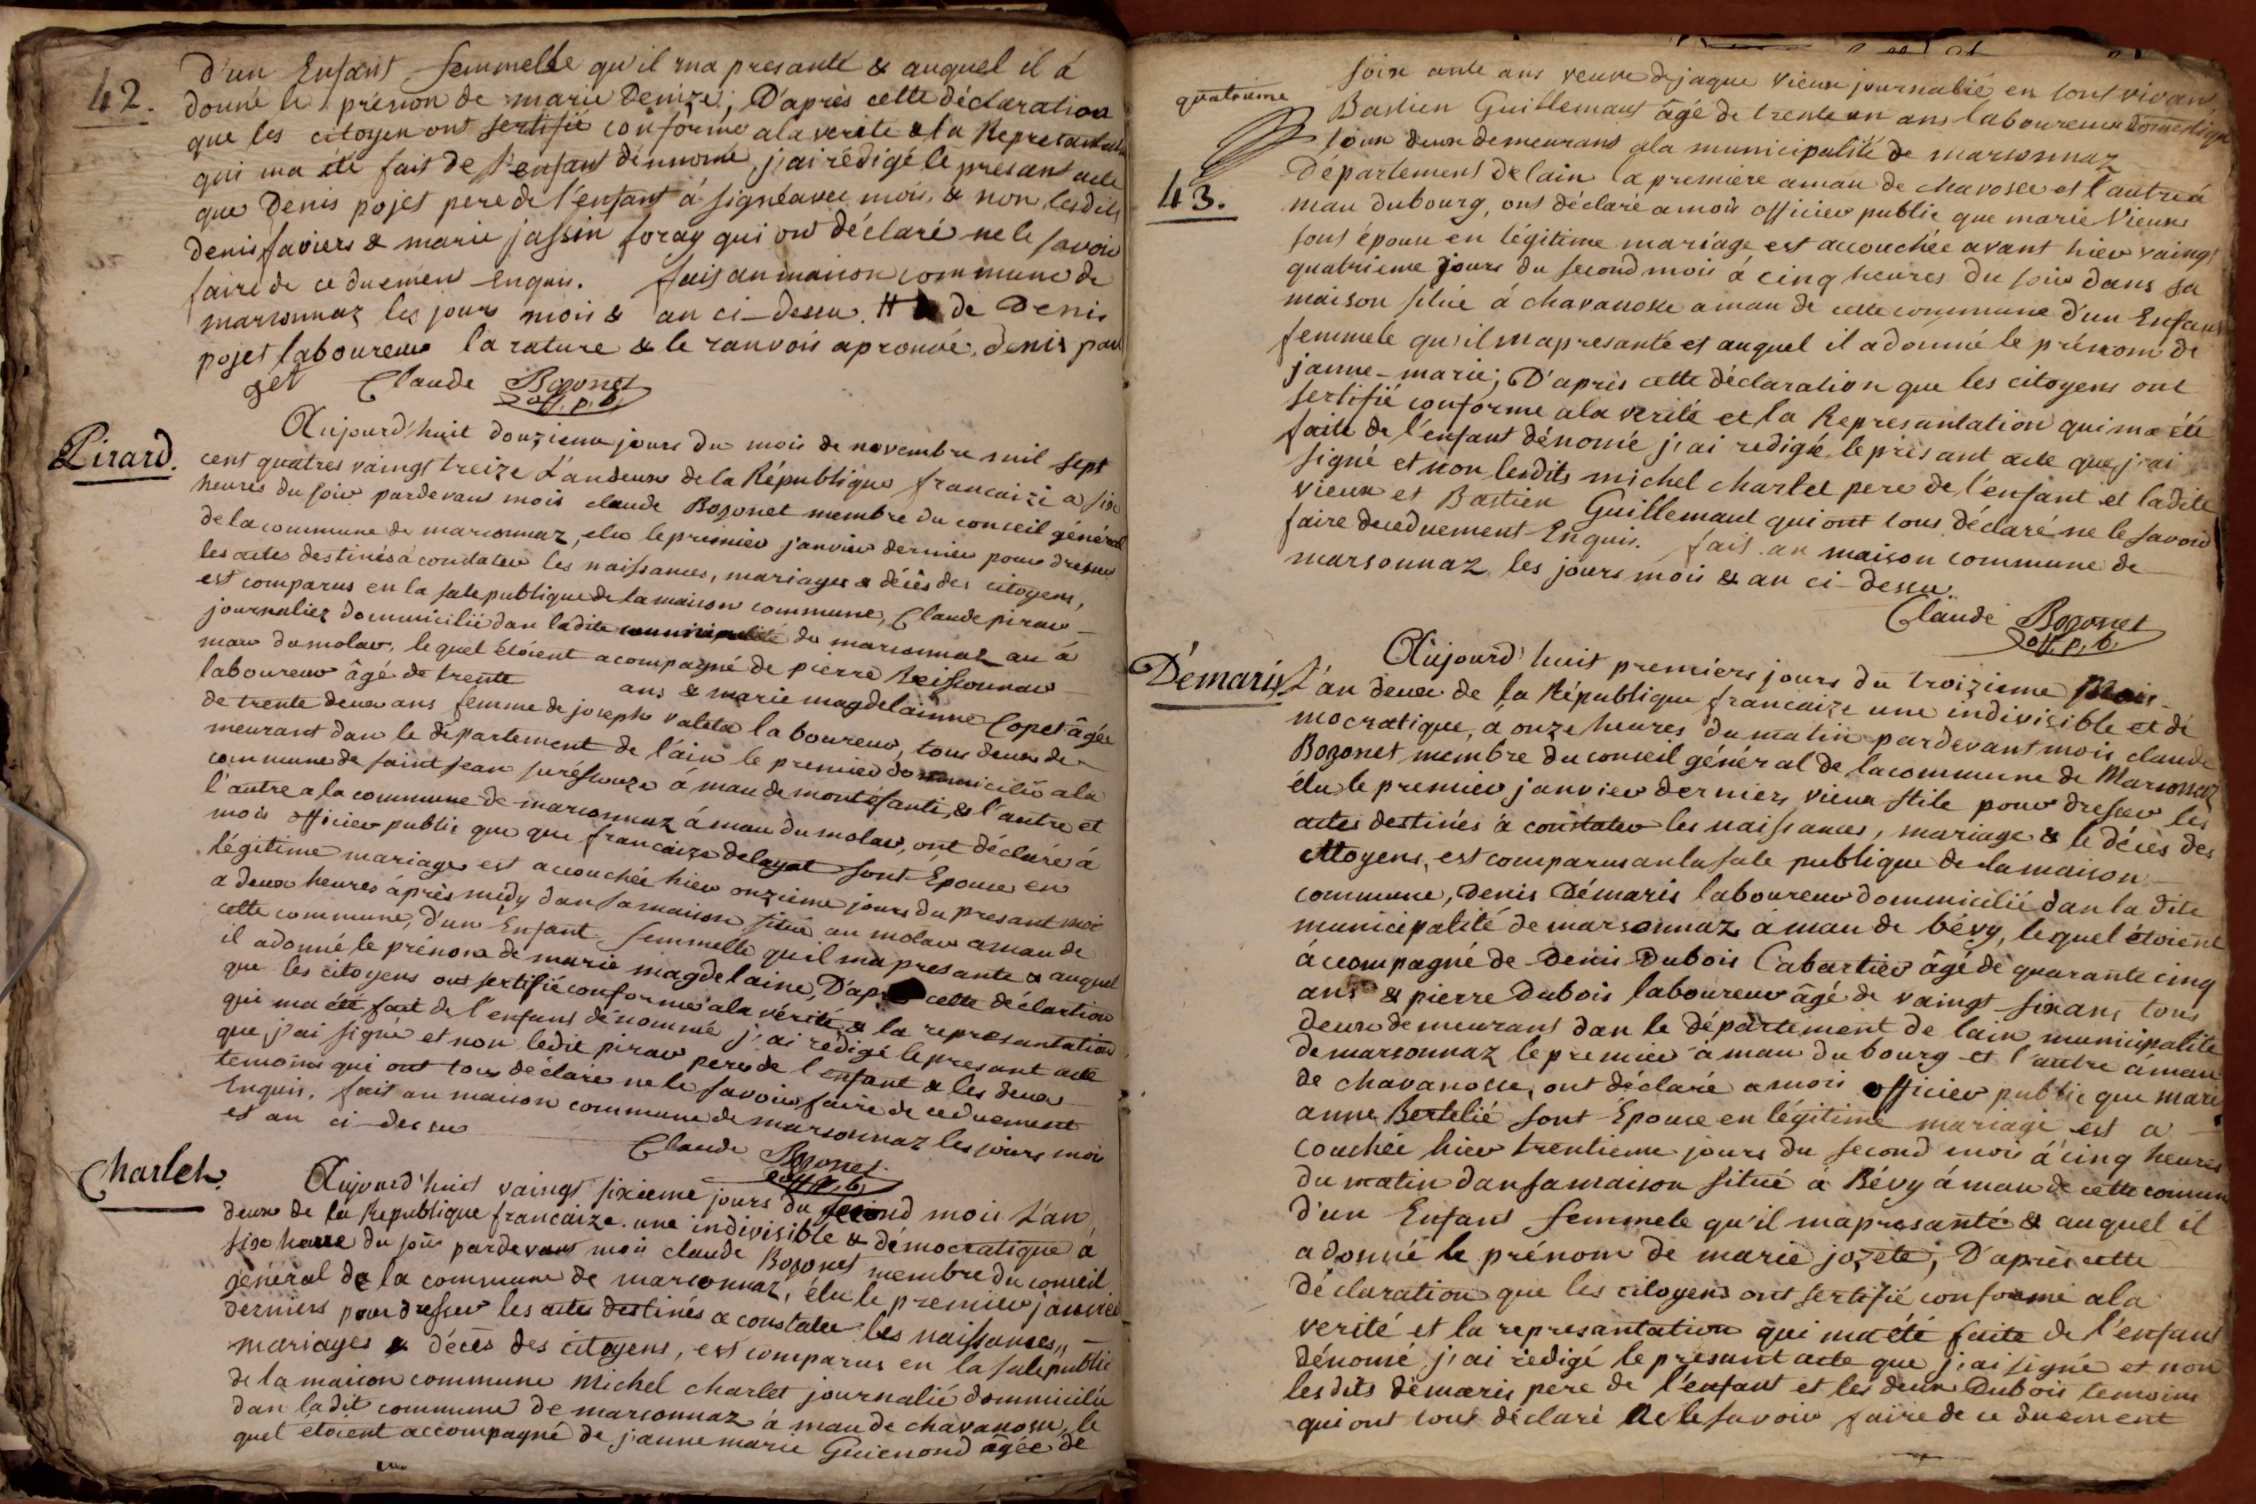 42.
d'un Enfant femmelle qu'il ma presanté & auquel il à
donné le prénon de marie Denize; D'après cette déclaration
que les citoyen ont sertifié conforme ala verite & la Represantation
qui ma été fait de l'enfant dénnomé, j'ai rédigé le présant acte
que Denis pojet pere de l'enfant à signé avec mois, & non lesdits
denis faviers & marie jassin foray qui ont déclaré ne le savoir
faire de ce duemen Enquis. fais an maison commune de
marsonnaz les jours mois & an ci-dessu. # de Denis
pojet laboureur la rature & le ranvois aprouvé, denis pau
get Claude Bozonet
off. p. b.
Pirard.
Aujourd'huit douzieme jours du mois de novembre mil sept
cent quatres vaingt treize L'an deux de la République francaize a six
heures du soir pardevant mois claude Bozonet membre du conseil général
de la commune de marsonnaz, elu le premier janvier dernier pour dresser
les actes destinés à constater les naissances, mariages & décès des citoyens,
est comparus en la sale publique de la maison commune, Claude pirar
journaliez dommicilié dan ladite municipalité de marsonnaz au à
mau du molar, lequel étoient acompagné de pierre
laboureur âgé de trente ans & marie magdelainne Copet âgée
de trente deux ans femme de joseph valeta laboureur, tous deux de-
meurant dan le département de l'ain le premier dommicilié ala
commune de saint jean suréssouze à mau de montéfanti, & l'autre et
l'autre a la commune de marsonnaz à mau du molar, ont déclaré à
mois officier public que que francaize delayat sont Epouse en
légitime mariage est accouchée hier onzieme jours du presant moi
a deux heures âprès midy dan sa maison sitüé au molar amau de
cette commune, d'un Enfant femmelle qu'il ma presanté & auquel
il adonné le prénon de marie magdelaine, D'apr cette déclartion
que les citoyens ont sertifié conforme ala vérité & la represantation
qui ma été fait de l'enfant dénommé j'ai rédigé le presant acte
que j'ai signé et non ledit pirar pere de l'enfant & les deux
temoins qui ont tous déclaré ne le savoir faire de ce duement
Enquis. fait an maison commune de marsonnaz les jours mois
et an ci-dessu
Claude Bozonet
off. p. b.
Charlet.
Aujourd'huit vaingt sixieme jours du second mois L'an
deux de la Republique francaize une indivisible & démocratique à
six heure du soir pardevant mois claude Bozonet membre du conseil
général de la commune de marsonnaz, élu le premier janvier
derniers pour dresser les actes destinés a constater les naissances,
mariages & décès des citoyens, est comparus en la sale public
de la maison commune Michel charlet journalié dommicilié
dan ladit commune de marsonnaz à mau de chavanosse, le
quel étoient accompagné de janne marie Guienond âgée de
quatrieme
43.
soix ante ans veuve de jaque vieux journalié en sont vivant
Bastien Guillemaut âgé de trente un ans laboureur domestique
tous deux demeurans ala municipalité de marsonnaz
Département de lain la premiere amau de chavosse et l'autre á
mau dubourg, ont déclaré a mois officier public que marie Vieux
sont épouse en légitime mariage est accouchée avant hier vaingt
quatrieme jours du second mois à cinq heures du soir dans sa
maison sitüé à chavanosse amau de cette commune d'un Enfant
femmele qu'il mapresanté et auquel il adonné le prénom de
janne-marie; D'après cette déclaration que les citoyens ont
sertifié conforme ala verité et la Represantation qui ma été
faite de l'enfant dénomé j'ai redigé le présant acte que j'ai
signé et non lesdits michel charlet pere de l'enfant et ladite
vieux et Bastien Guillemaut qui ont tous déclaré ne le savoir
faire de ce duement Enquis. fait an maison commune de
marsonnaz les jours mois & an ci-dessu.
Claude Bozonet
off. p. b.
Démaris
Aujourd'huit premiers jours du troizieme Mois
L'an deux de la République francaize une indivisible et dé
mocratique, a onze heures du matin pardevant mois claude
Bozonet membre du conseil général de la commune de Marsonnaz
élu le premier janvier derniers vieux stile pour dresser les
actes destinés à constater les naissances, mariage & le décès des
cittoyens, est comparus an la sale publique de la maison
commune, denis Démaris laboureur dommicilié dan la dite
municipalité de marsonnaz à mau de bévy, lequel étoient
accompagné de Denis Dubois Cabartier âgé de quarante cinq
ans & pierre Dubois laboureur âgé de vaingt six ans, tous
deux demeurant dan le département de lain municipalite
de marsonnaz le premier à mau du bourg et l'autre à mau
de chavanosse, ont déclaré a mois officier public que mari
anne Bertelié sont Epouse en légitime mariage est a
couchée hier trentieme jours du second mois à cinq heures
du matin dan sa maison sitüé à Bévy à mau de cette commun
d'un Enfant femmele qu'il mapresanté & auquel il
a donné le prénom de marie jozete, D'après cette
déclaration que les citoyens ont sertifié conforme ala
verité et la represantation qui ma été faite de l'enfant
dénomé, j'ai rédigé le presant acte que j'ai signé et non
lesdits démaris pere de l'enfant et les deux Dubois temoins
qui ont tout déclaré ne le savoir faire de ce duement